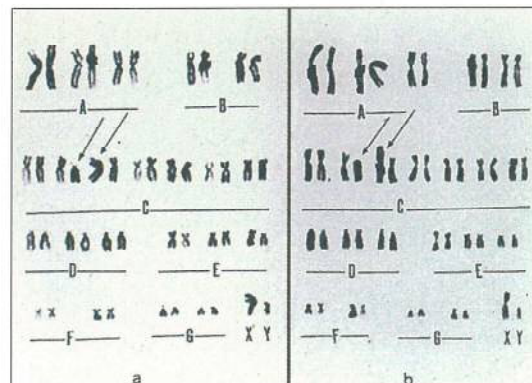 A B
C
D E
F G X Y
a
A B
C
D E
F G X Y
b